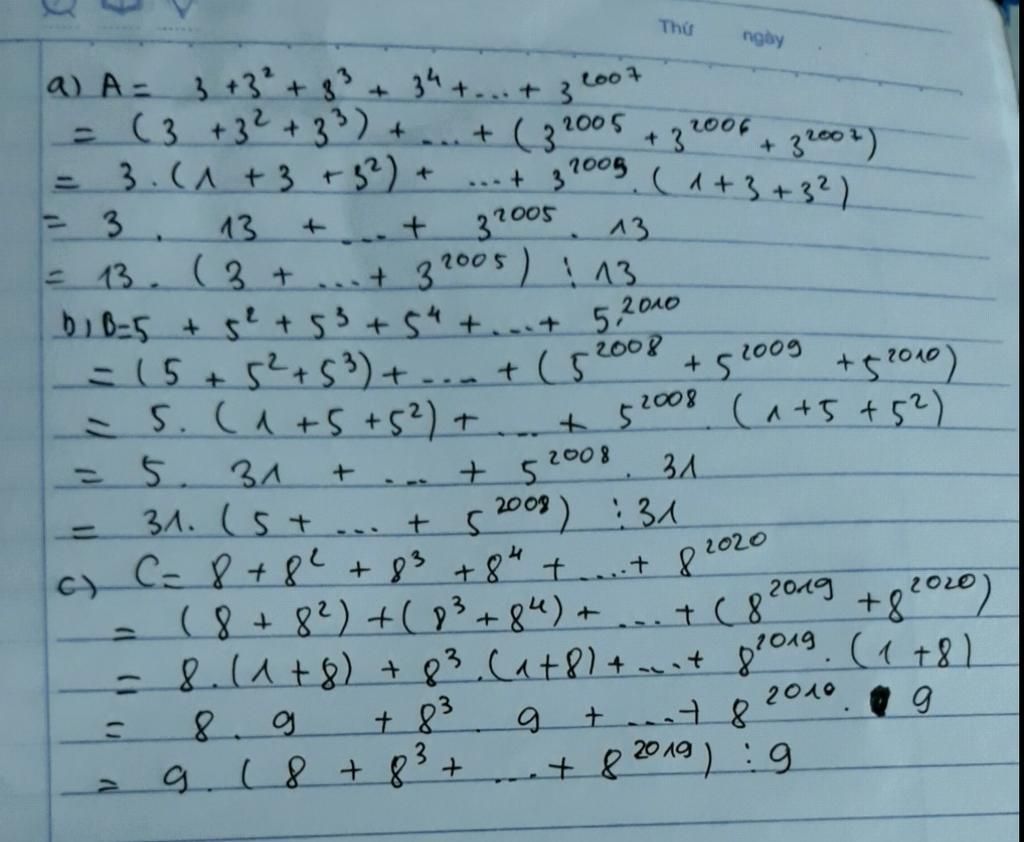 Thứ ngày
a) A = 3 + 3² + 3³ + 3⁴ + ... + 3²⁰⁰⁷
= (3 + 3² + 3³) + ... + (3²⁰⁰⁵ + 3²⁰⁰⁶ + 3²⁰⁰⁷)
= 3 . (1 + 3 + 3²) + ... + 3²⁰⁰⁵ . (1 + 3 + 3²)
= 3 . 13 + ... + 3²⁰⁰⁵ . 13
= 13 . (3 + ... + 3²⁰⁰⁵) ⋮ 13
b) B = 5 + 5² + 5³ + 5⁴ + ... + 5²⁰¹⁰
= (5 + 5² + 5³) + ... + (5²⁰⁰⁸ + 5²⁰⁰⁹ + 5²⁰¹⁰)
= 5 . (1 + 5 + 5²) + ... + 5²⁰⁰⁸ . (1 + 5 + 5²)
= 5 . 31 + ... + 5²⁰⁰⁸ . 31
= 31 . (5 + ... + 5²⁰⁰⁸) ⋮ 31
c) C = 8 + 8² + 8³ + 8⁴ + ... + 8²⁰²⁰
= (8 + 8²) + (8³ + 8⁴) + ... + (8²⁰¹⁹ + 8²⁰²⁰)
= 8 . (1 + 8) + 8³ . (1 + 8) + ... + 8²⁰¹⁹ . (1 + 8)
= 8 . 9 + 8³ . 9 + ... + 8²⁰¹⁹ . 9
= 9 . (8 + 8³ + ... + 8²⁰¹⁹) ⋮ 9